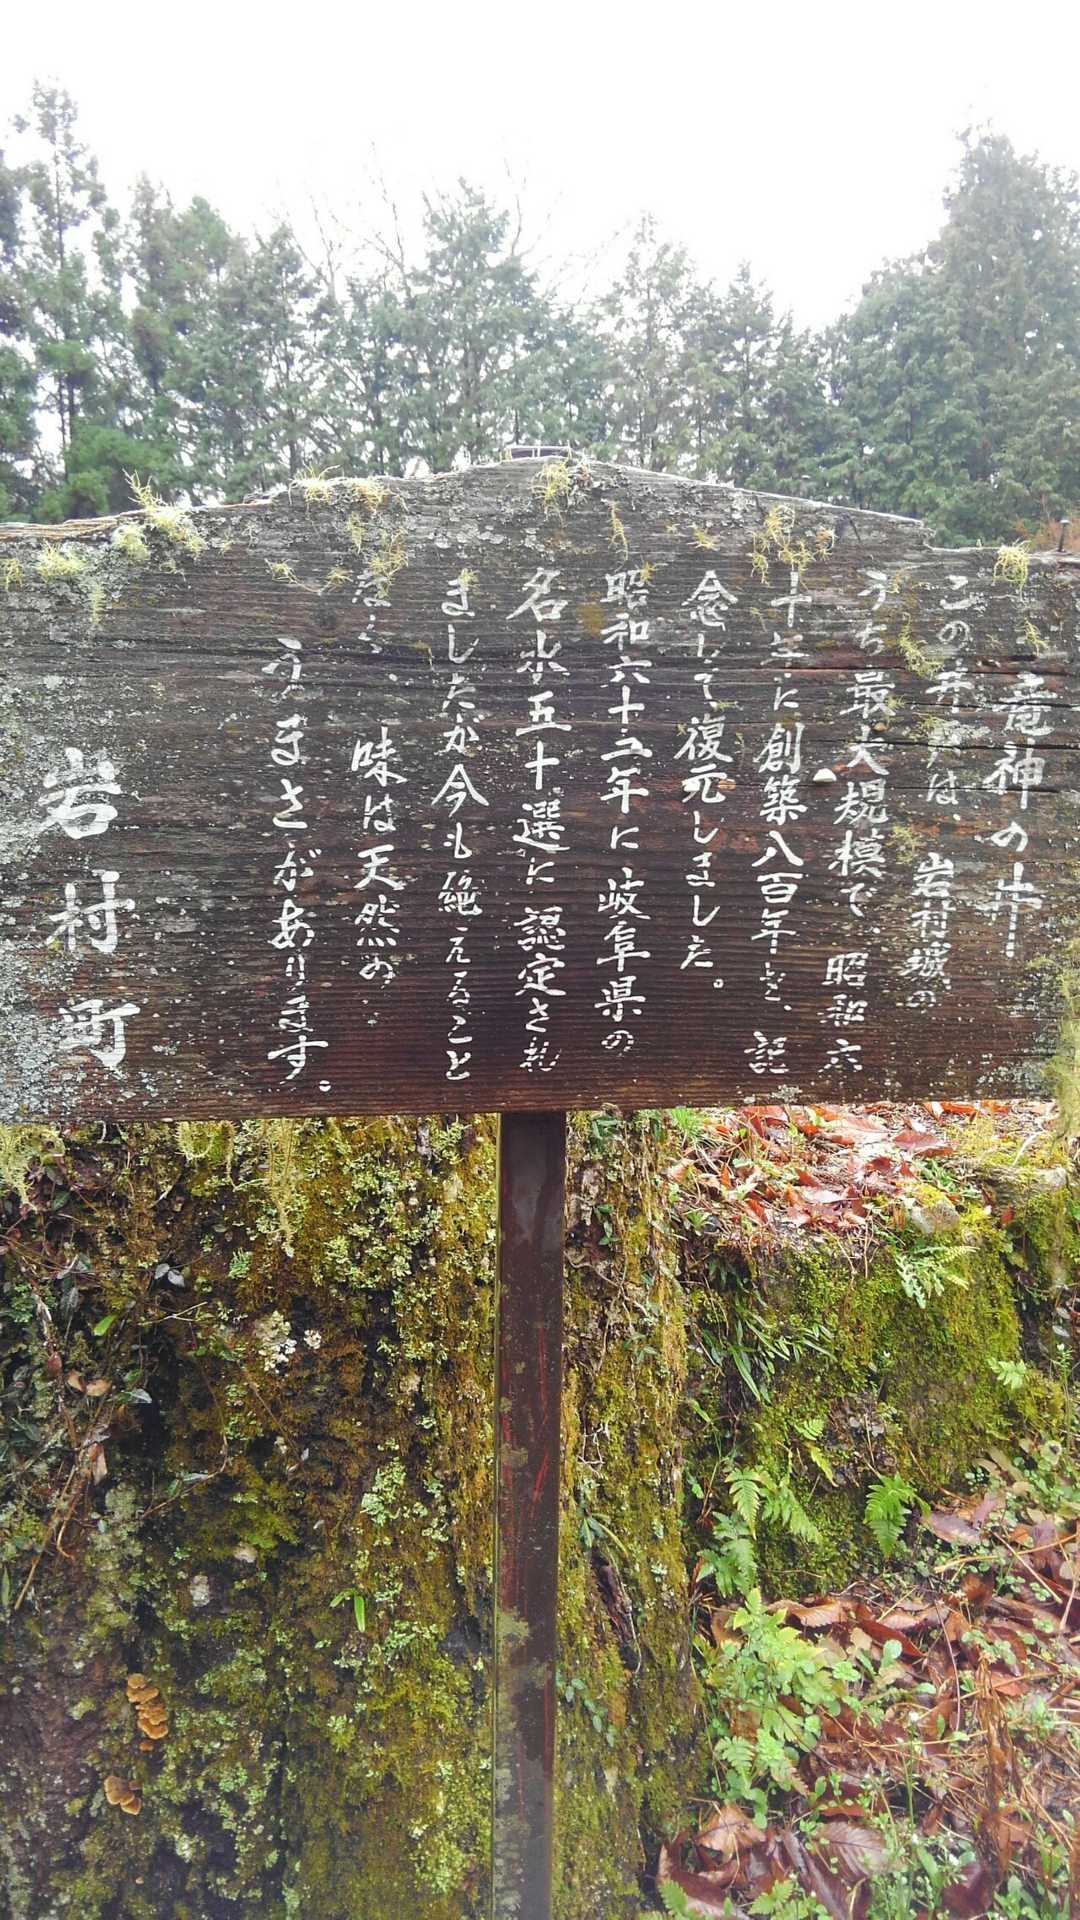 竜神の井
この井戸は、岩村城の
うち最大規模で、昭和六
十年に創築八百年を、記
念して復元しました。
昭和六十五年に岐阜県の
名水五十選に認定され
ましたが今も絶えること
なく、味は天然の
うまさがあります。
岩村町